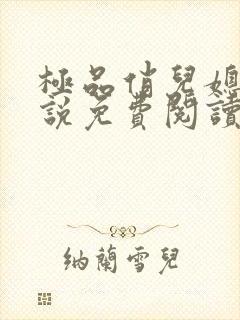 極品俏兒媳
說免費閱讀
納蘭雪兒